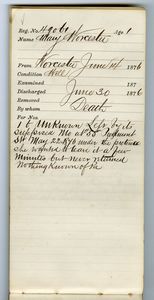 Reg. No. 49061 Age 1
Name Mary Worcester
From Worcester June 14 1876
Condition Well
Examined 187
Discharged June 30 1876
Removed
By whom Death
For No.
1 & Unknown Left by its
supposed Mo at 35
St May 22 & 76 under the pretense
she wanted to leave it a few
Minutes but never returned
Nothing Known of Fa